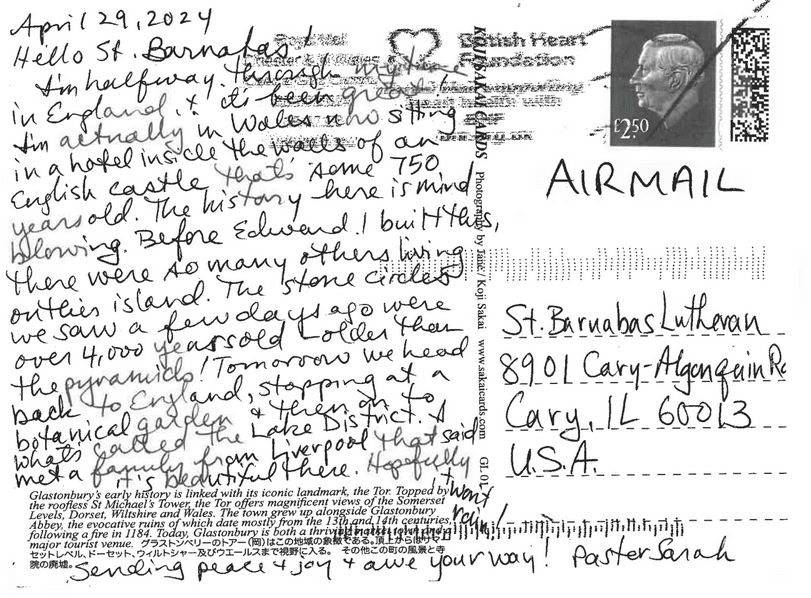 April 29, 2024
Hello St. Barnabas!
I'm halfway through my time
in England, & it's been great!
I'm actually in Wales now sitting
in a hotel inside the walls of an
English castle that's some 750
years old. The history here is mind
blowing. Before Edward I built this,
there were so many others living
on this island. The stone circles
we saw a few days ago were
over 4,000 years old - older than
the pyramids! Tomorrow we head
back to England, stopping at a
botanical garden & then on to
what's called the Lake District. I
met a family from Liverpool that said
it's beautiful there. Hopefully
it won't
rain!
Sending peace & joy & awe your way! Pastor Sarah
Glastonbury's early history is linked with its iconic landmark, the Tor. Topped by
the roofless St Michael's Tower, the Tor offers magnificent views of the Somerset
Levels, Dorset, Wiltshire and Wales. The town grew up alongside Glastonbury
Abbey, the evocative ruins of which date mostly from the 13th and 14th centuries,
following a fire in 1184. Today, Glastonbury is both a thriving market town and a
major tourist venue. グラストンベリーのトアー(岡)はこの地域の象徴である。頂上からはサマー
セットレベル、ドーセット、ウィルトシャー及びウエールスまで視野に入る。 その他この町の風景と寺
院の廃墟。
KOJI SAKAI CARDS Photography by Jane / Koji Sakai www.sakaicards.com GL 01
British Heart
Foundation
£2.50
AIRMAIL
St. Barnabas Lutheran
8901 Cary-Algonquin Rd
Cary, IL 60013
U.S.A.